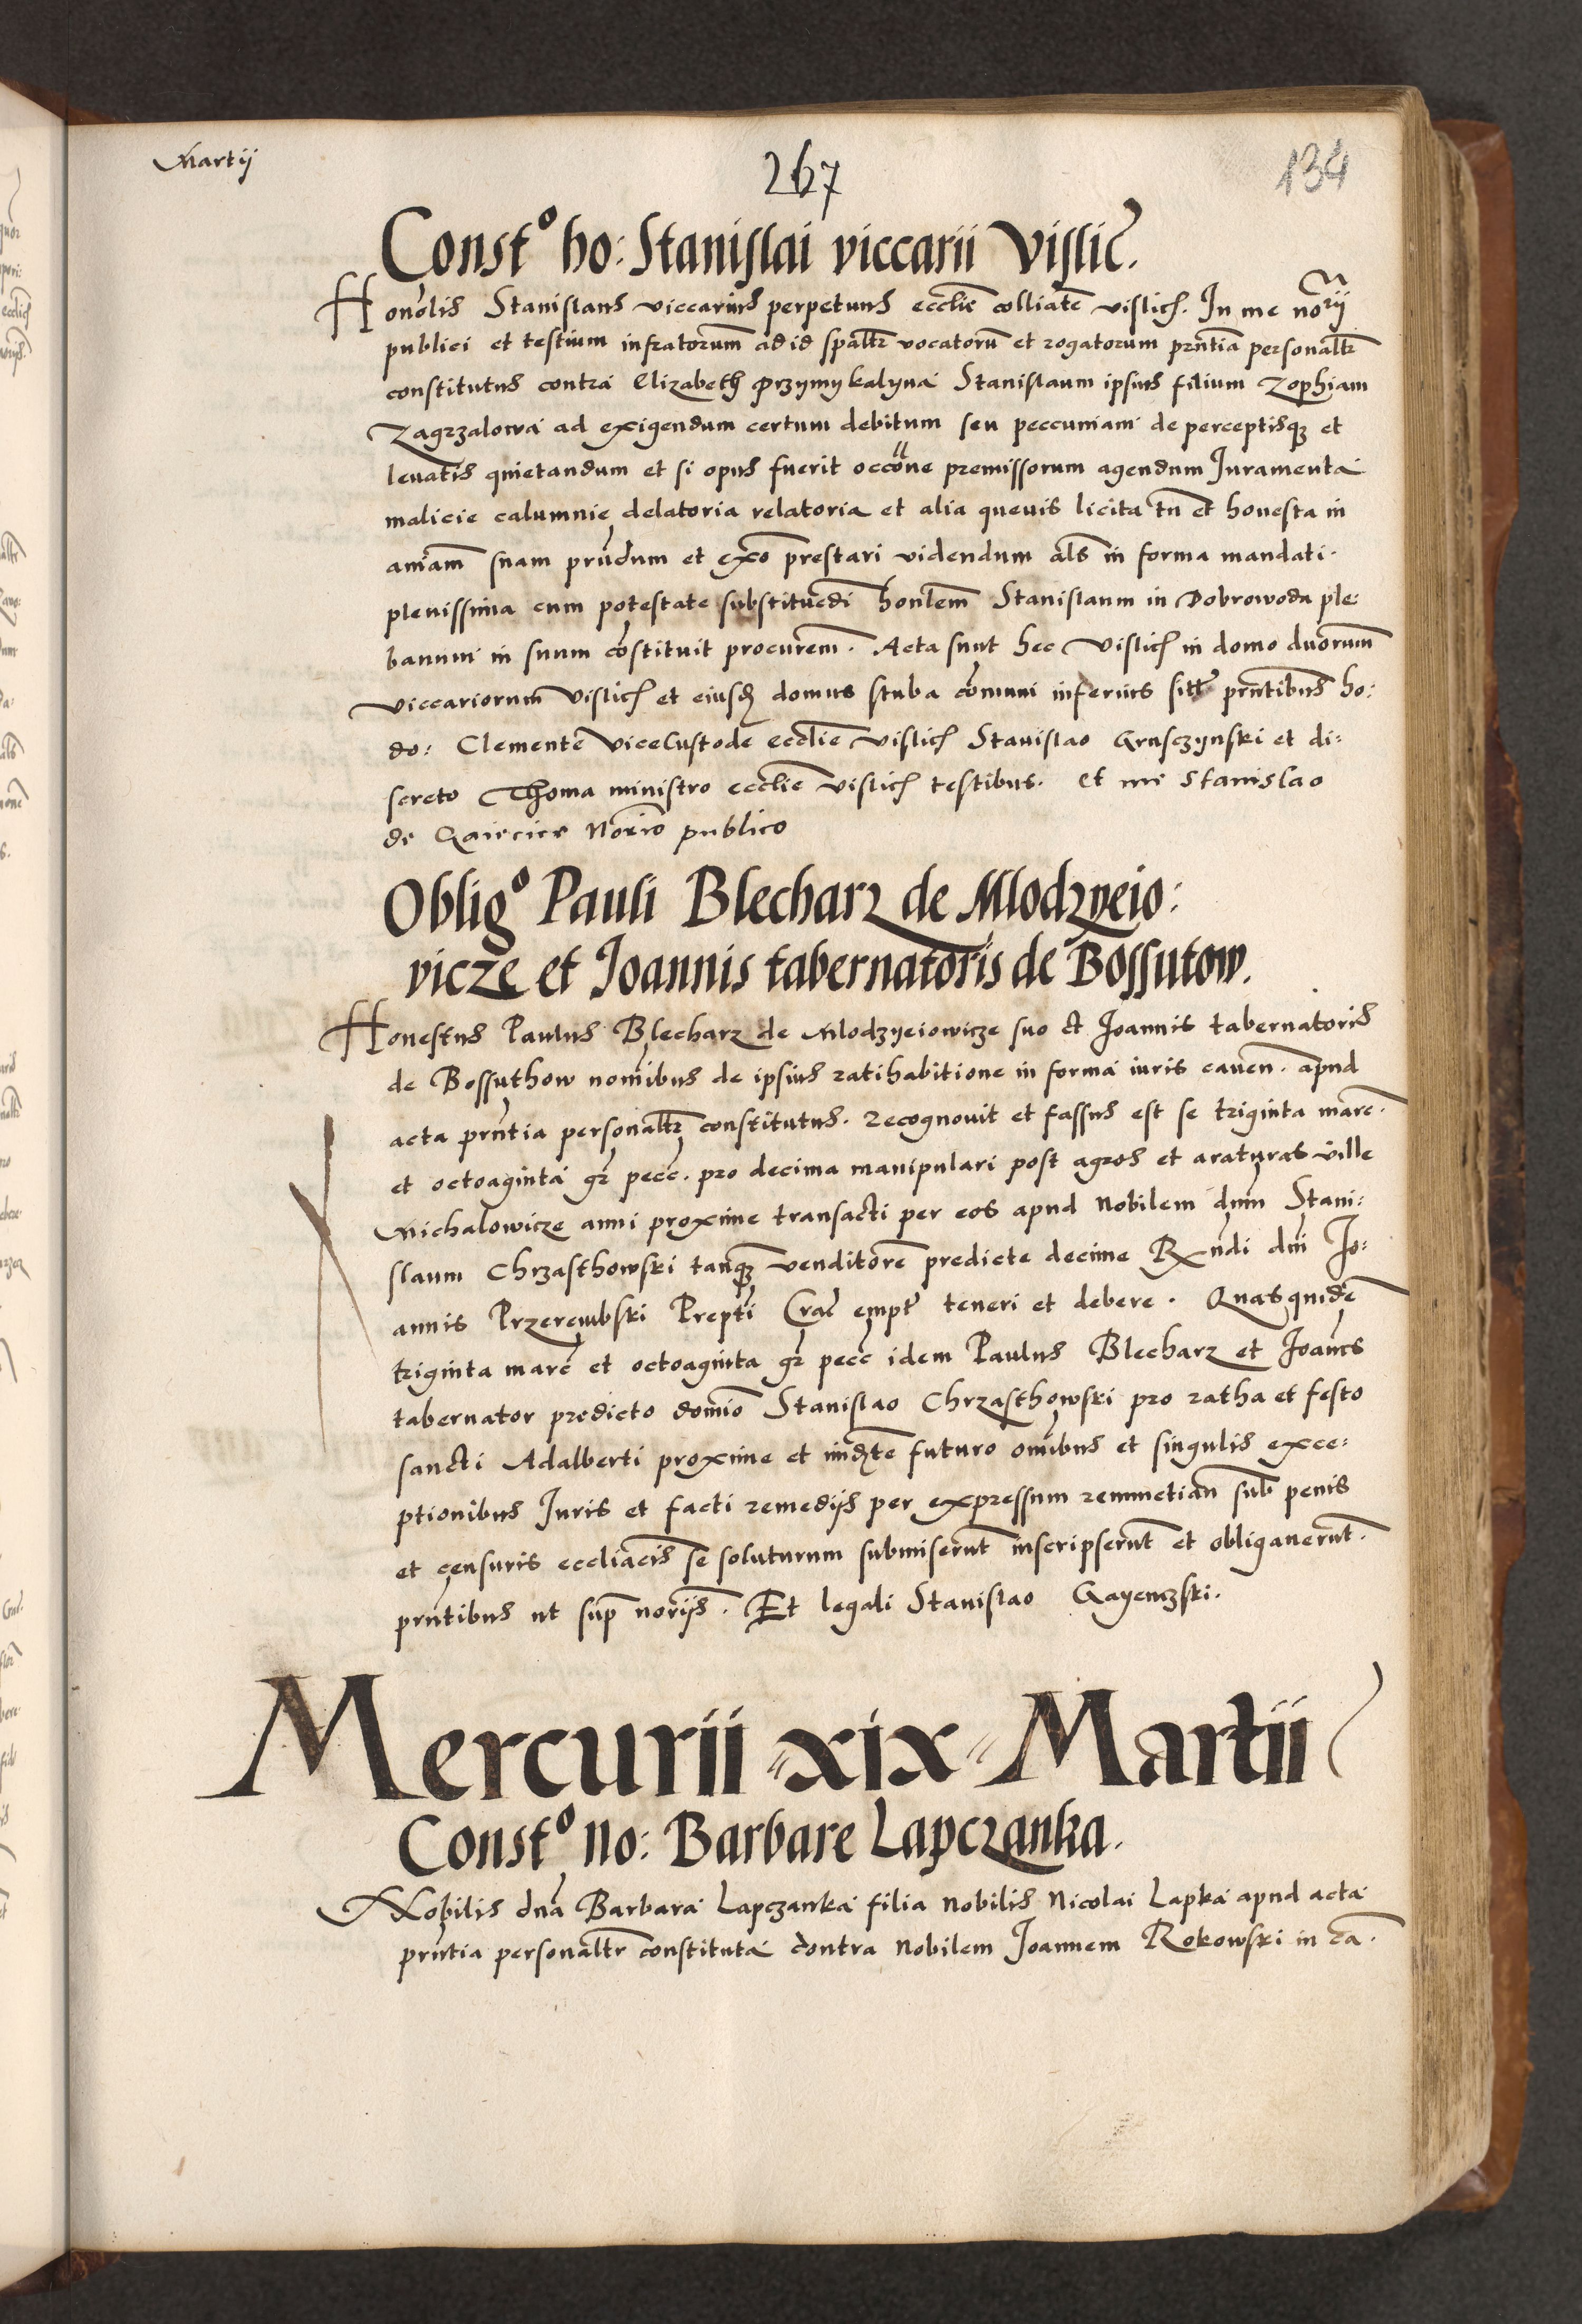 Martij
267
134
Constᵒ ho: Stanislai viccarii Vislic̃.
Honõlis Stanislaus viccarius perpetuus eccłie colliatẽ vislicẽ. In me norij
publici et testium infratorum̃ ad id sp̃altr̃ vocatorũ et rogatorum pr̃ntia personaltr̃
constitutus contra Elizabeth Przymykalyna Stanislaum ipsius filium Zophiam
Zagrzalowa ad exigendum certum debitum seu peccuniam de perceptisq; et
levatis quietandum et si opus fuerit occõne premissorum agendum Juramenta
malicie calumnie delatoria relatoria et alia quevis licita tñ et honesta in
aniam̃ suam prũdum et exõ prestari videndum als̃ in forma mandati
plenissima cum potestate substituẽdi honlem̃ Stanislaum in Dobrowoda ple:
banum in suum cõstituit procurem̃. Acta sunt hec vislicẽ in domo duorum̃
viccariorum vislicẽ et eiusd̃ domus stuba cõmuni inferius sitt̃ pr̃ntibus ho:
do: Clementẽ viceCustode eccłie vislicẽ Stanislao Grusczynski et di:
screto Thoma ministro eccłie vislicẽ testibus. et me Stanislao
de Norĩo publico
Obligᵒ Pauli Blecharz de Mlodzyeio:
vicze et Joannis tabernatoris de Bossutow.
Honestus Paulus Blecharz de Mlodzyeiowicze suo et Joannis tabernatoris
de Bossuthow nomĩbus de ipsius ratihabitione in forma iuris caven̄. apud
acta pr̃ntia personaltr̃ constitutus. recognovit et fassus est se triginta marc̃.
et octoaginta gr̃ pecc̃. pro decima manipulari post agros et araturas ville
Michalowicze anni proxime transacti per eos apud Nobilem dñm Stani:
slaum Chrzasthowski tanq̃ȝ venditorẽ predicte decime Rx̃ndi dñi Jo:
annis Przerembski Prep̃ti Crac̃ empt̃ teneri et debere. Quasquidẽ
triginta marc̃ et octoaginta gr̃ pecc̃ idem Paulus Blecharz et Joañes
tabernator predicto domĩo Stanislao Chrzasthowski pro ratha et festo
sancti Adalberti proxime et imd̃te futuro omĩbus et singulis exce:
ptionibus Juris et facti remedijs per expressum renunctian̄ sub penis
et censuris eccłiacis se soluturum submiserũt inscripserũt et obligaverũt.
pr̃ntibus ut sup̃ norijs. Et legali Stanislao Gayewski.
Mercurii xix Martii
Constᵒ No: Barbare Lapczanka.
Nobilis dña Barbara Lapczanka filia nobilis Nicolai Lapka apud acta
pr̃ntia personaltr̃ constituta contra nobilem Joannem Rokowski in cã.